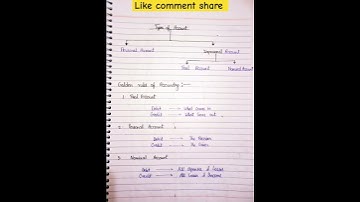 Like comment share
Type of Account
Personal Account
Impersonal Account
Real Account
Nominal Account
Golden rules of Accounting :-
1. Real Account
Debit → what comes in
Credit → what goes out
2. Personal Account
Debit → The Receiver
Credit → The Giver
3. Nominal Account
Debit → All expenses & losses
Credit → All